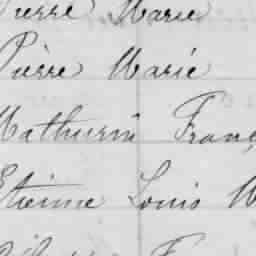 Pierre Marie
Pièrre Marie
Mathurin Franç
Etienne Louis M